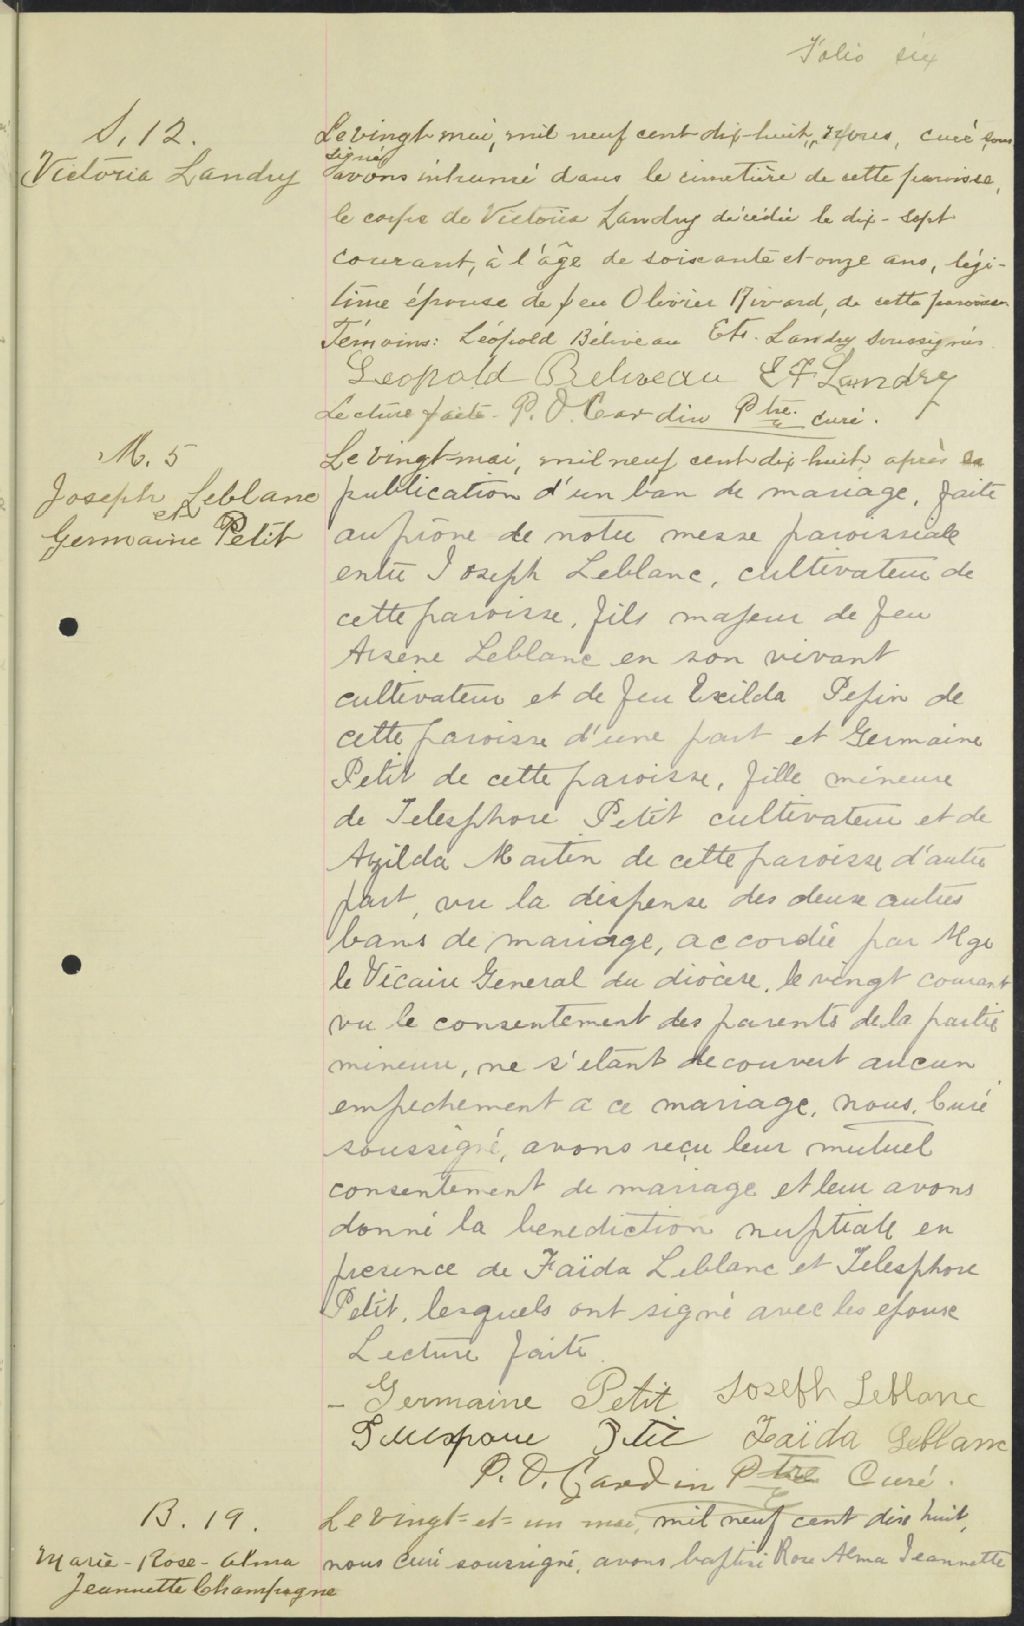 Folio six
S. 12.
Victoria Landry
Le vingt mai, mil neuf cent dix-huit, nous, curé sous
signé
avons inhumé dans le cimetière de cette paroisse,
le corps de Victoria Landry décédée le dix-sept
courant, à l'âge de soixante et onze ans, légi-
time épouse de feu Olivier Rivard, de cette paroisse
Témoins: Léopold Béliveau Et. Landry soussignés
Leopold Beliveau E F Landry
Lecture faite. P. O. Cardin Ptre. curé.
M. 5
Joseph Leblanc
et
Germaine Petit
Le vingt-mai, mil neuf cent dix-huit, après la
publication d'un ban de mariage, faite
au prône de notre messe paroissiale
entre Joseph Leblanc, cultivateur de
cette paroisse, fils majeur de feu
Arsene Leblanc en son vivant
cultivateur et de feu Exilda Pepin de
cette paroisse d'une part et Germaine
Petit de cette paroisse, fille mineure
de Telesphore Petit cultivateur et de
Azilda Martin de cette paroisse d'autre
part, vu la dispense des deux autres
bans de mariage, accordée par Mgr
le Vicaire General du diocèse, le vingt courant
vu le consentement des parents de la partie
mineure, ne s'etant decouvert aucun
empechement a ce mariage, nous, Curé
soussigné, avons reçu leur mutuel
consentement de mariage et leur avons
donné la benediction nuptiale en
presence de Faïda Leblanc et Telesphore
Petit, lesquels ont signé avec les epoux
Lecture faite
- Germaine Petit Joseph Leblanc
Petit Faïda Leblanc
P. O. Cardin Ptre Curé.
B. 19.
Marie-Rose-Alma
Jeannette Champagne
Le vingt-et-un mai, mil neuf cent dix huit,
nous curé soussigné, avons baptisé Rose Alma Jeannette